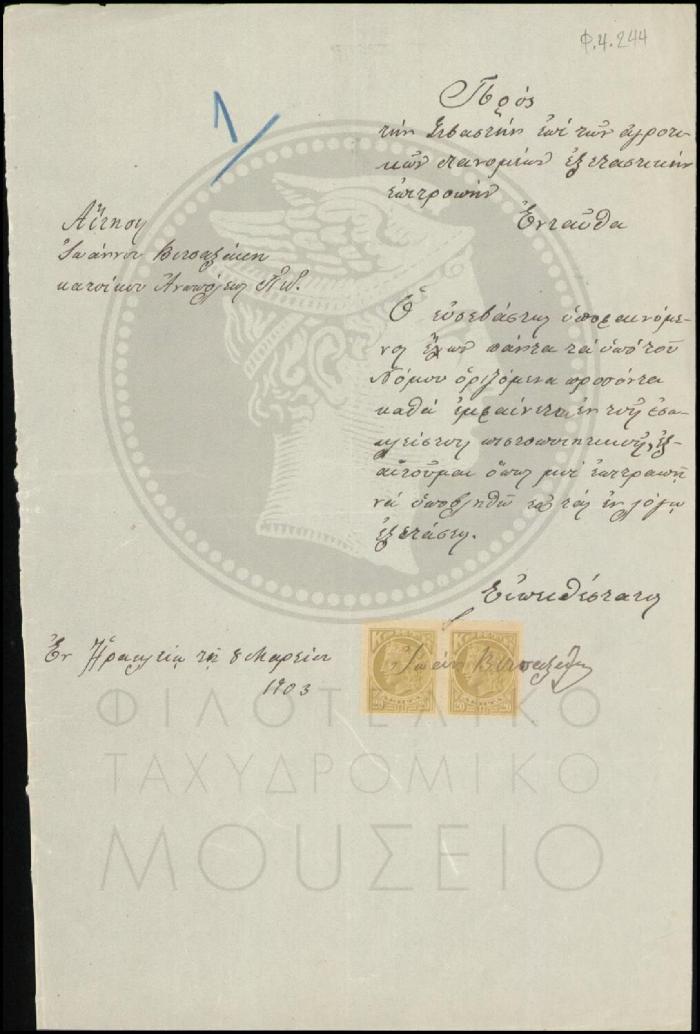 Φ.4.244
1
Πρὸς
τὴν Σεβαστὴν ἐπὶ τῶν ἀγροτι-
κῶν διανομέων ἐξεταστικὴν
ἐπιτροπὴν
Ἐνταῦθα
Αἴτησις
Ἰωάννου
κατοίκου Ἀνωπόλεως
Ὁ εὐσεβάστως ὑποφαινόμε-
νος ἔχων πάντα τὰ ὑπὸ τοῦ
Νόμου ὁριζόμενα προσόντα
καθὰ ἐμφαίνεται ἐν τοῖς ἐσω-
κλείστοις πιστοποιητικοῖς, ἐξ-
αιτοῦμαι ὅπως μοὶ ἐπιτραπῇ
νὰ ὑποβληθῶ εἰς τὰς ἐν λόγῳ
ἐξετάσεις.
Εὐπειθέστατος
Ἐν Ἡρακλείῳ τῇ 8 Μαρτίου
1903
20 20
20 20
ΦΙΛΟΤΕΛΙΚΟ
ΤΑΧΥΔΡΟΜΙΚΟ
ΜΟΥΣΕΙΟ